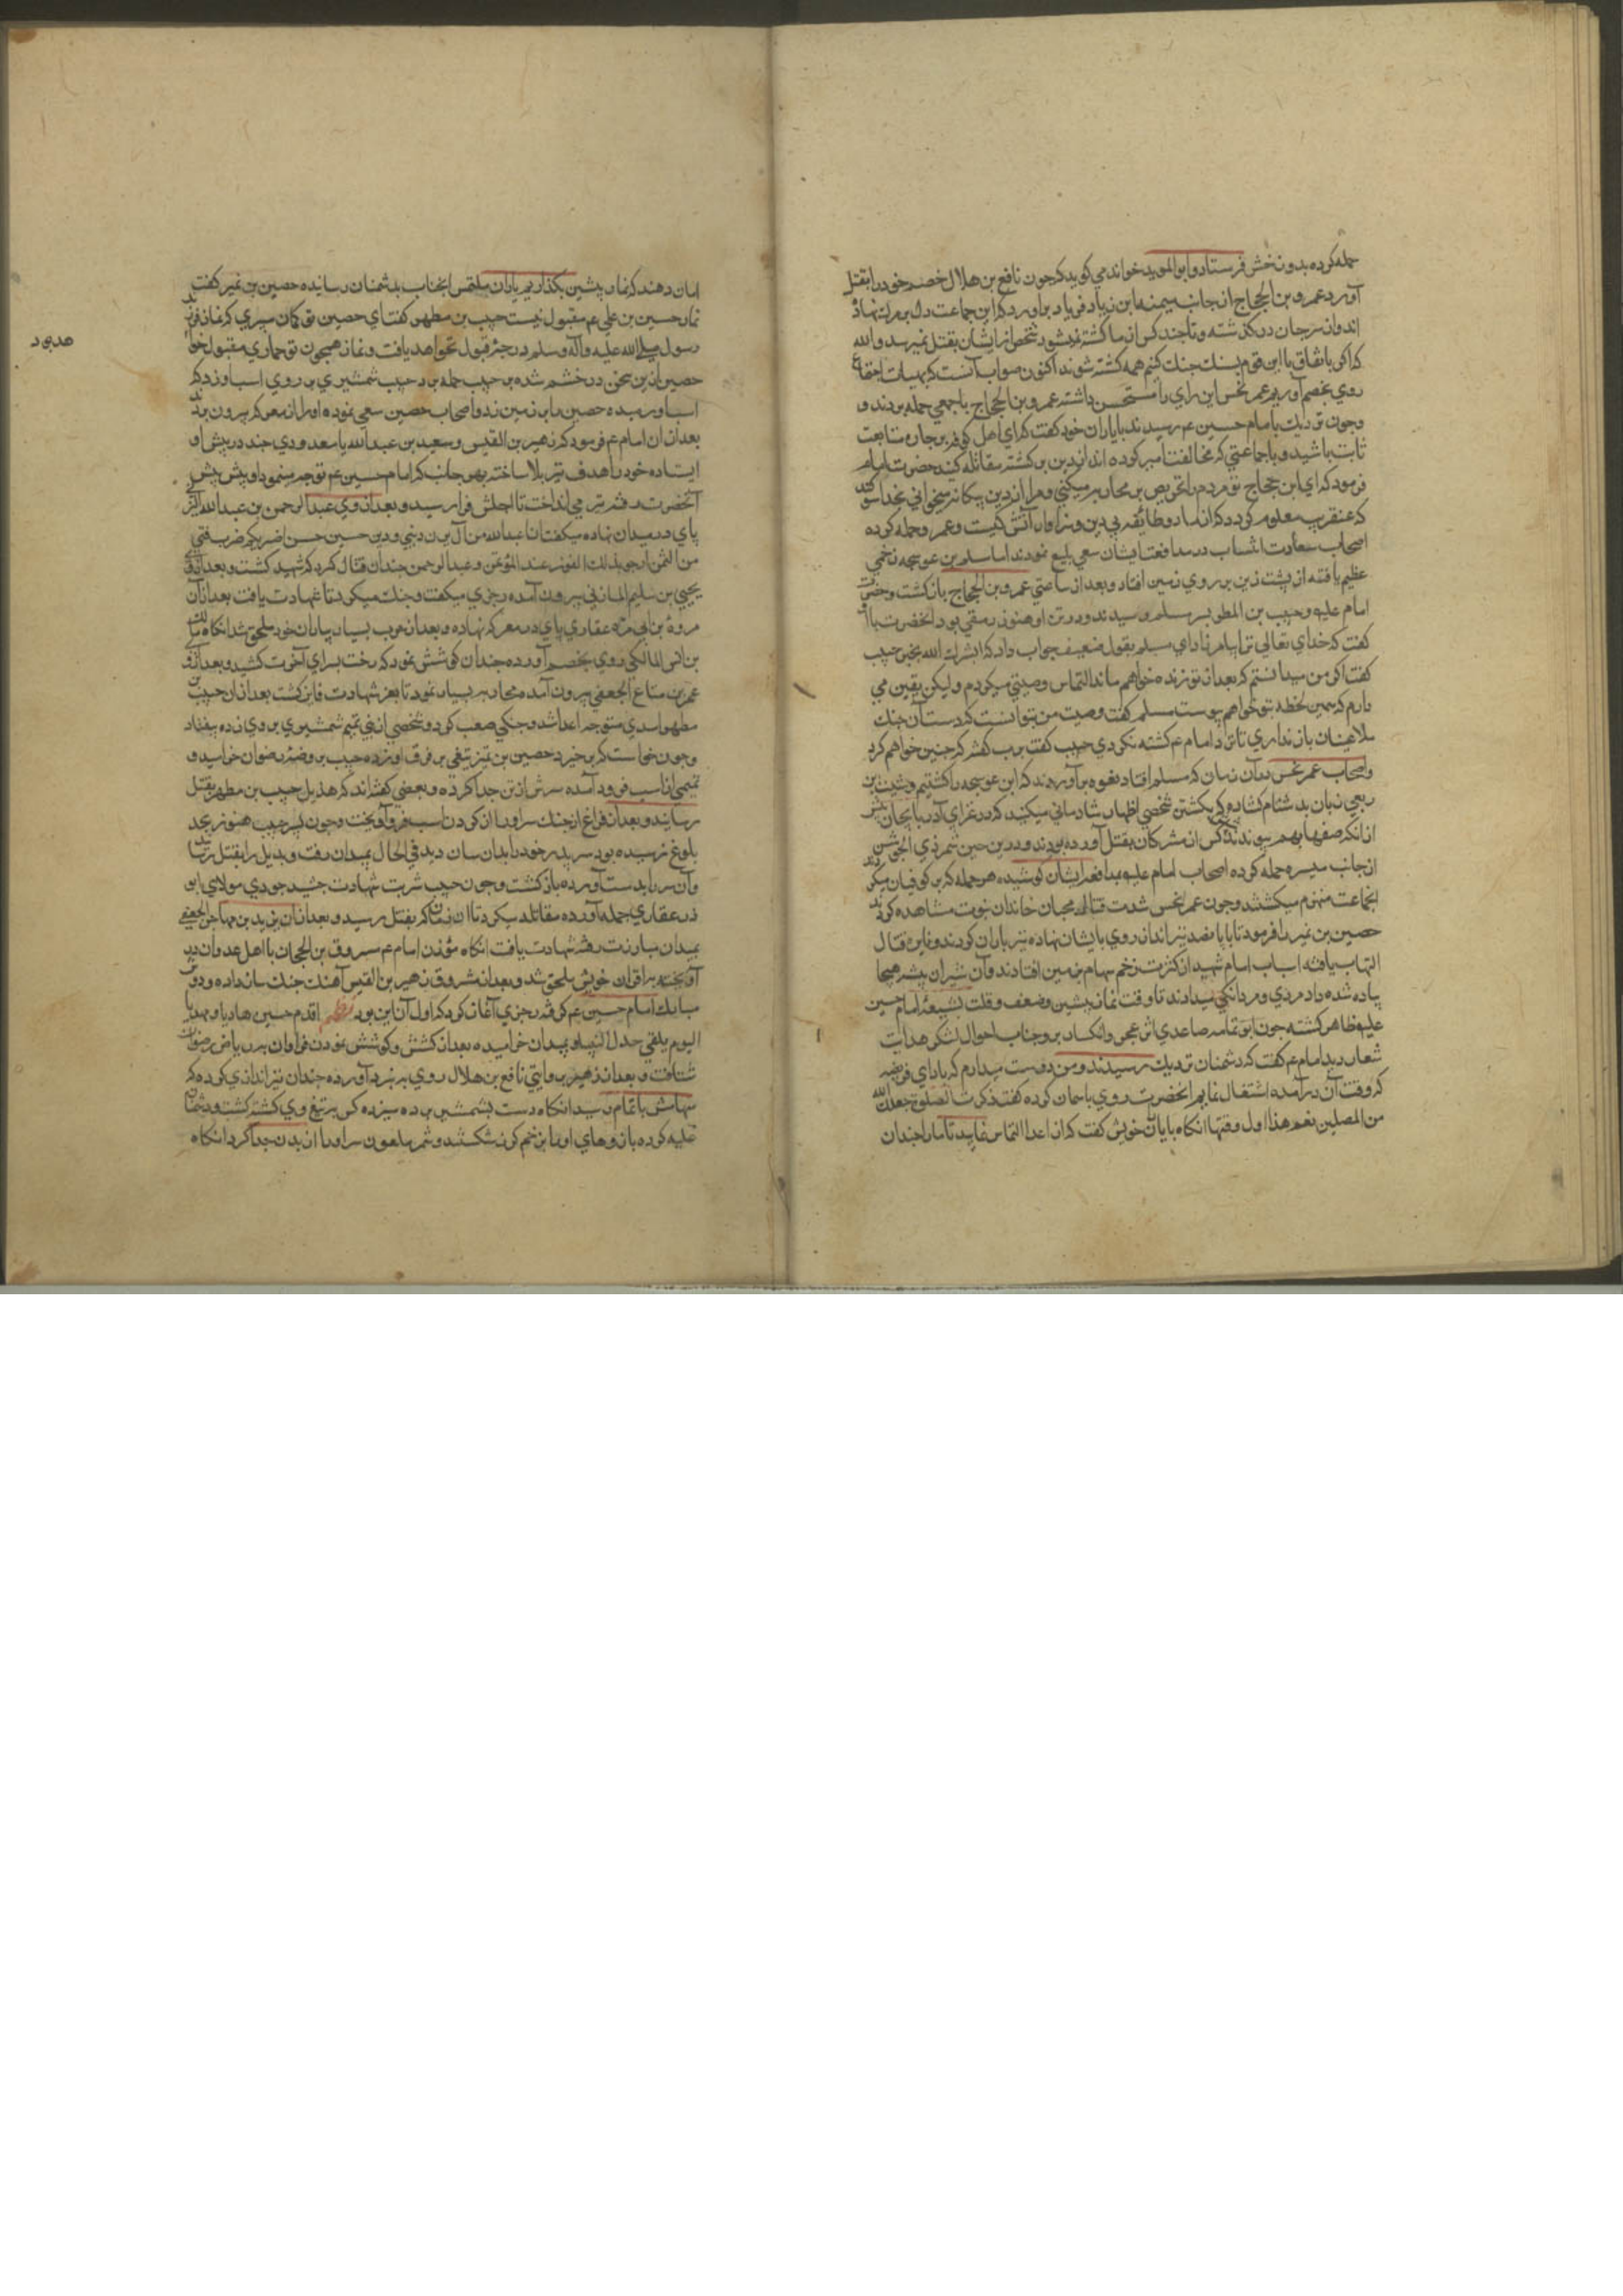 حمله کرده بدوزخش فرستاد و ابو الموید خوارزمی کوید که چون نافع بن هلال خصم خود را بقتل
آورد عمرو بن الحجاج از جانب میمنه ابن زیاد فریاد براورد که این جماعت دل بر مرک نهاده
اند و از سر جان درکذشته و تا چند کس از ما کشته نمیشود شخص از ایشان بقتل نمیرسد و الله
که اکر باتفاق با این قوم بسنک جنک کنیم همه کشته شوند اکنون صواب آنست که بهیات اجتماع
روی بخصم آوریم عمر نحس این رای را مستحسن داشته عمرو بن الحجاج با جمعی حمله بردند و
چون نزدیک بامام حسین ع م رسیدند با یاران خود کفت که ای اهل کوفه بر جاده متابعت
ثابت باشید و با جماعتی که مخالفت امیر کرده اند از دین برکشته مقاتله کنید حضرت امام
فرمود که ای ابن حجاج تو مردم را تحریص بر محاربه میکنی و مرا از دین بیکانه میخوانی بخدا سوکند
که عنقریب معلوم کردد که از ما دو طایفه بی دین و سزاوار آتش کیست و عمرو حمله کرده
اصحاب سعادت انتساب در مدافعت ایشان سعی بلیغ نمودند اما مسلم بن عوسجه زخمی
عظیم یافته از پشت زین بر روی زمین افتاد و بعد از ساعتی عمرو بن الحجاج بازکشت و حضرت
امام علیه و حبیب بن المطهر بسر مسلم رسیدند و در تن او هنوز رمقی بود انحضرت با او
کفت که خدای تعالی ترا بیامرزاد ای مسلم بقول ضعیف جواب داد که ابشرک الله بخیر حبیب
کفت اکر من میدانستم که بعد از تو زنده خواهم ماند التماس وصیتی میکردم ولیکن یقین می
دارم که همین لحظه بتو خواهم پیوست مسلم کفت وصیت من بتو انست که دست از جنک
ملاعنان باز نداری تا نزد امام ع م کشته نکردی حبیب کفت برب کعبه که چنین خواهم کرد
و اصحاب عمر نحس در آن زمان که مسلم افتاد نعره براوردند که ابن عوسجه را کشتیم و شبث بن
ربعی زبان بدشنام کشاده که بکشتن شخصی اظهار شادمانی میکنید که در غزای آذربایجان پیش
از انکه صفها بهم پیوندند کس از مشرکان بقتل آورده بود و درین حین شمر ذی الجوشن
از جانب میسره حمله کرده اصحاب امام علیه بمدافعه ایشان کوشیده هر حمله که بر کوفیان میکردند
انجماعت منهزم میکشتند و چون عمر نحس شدت قتال محبان خاندان نبوت مشاهده کردند
حصین بن نمیر را فرمود تا با پانصد تیرانداز روی بایشان نهاده تیرباران کردند و نایره قتال
التهاب یافته اسباب امام شهید از کثرت زخم سهام بر زمین افتادند و آن شیران بیشه هیجا
پیاده شده داد مردی و مردانکی میدادند تا وقت نماز پیشین و ضعف و قلت بشیعه امام حسین
علیه ظاهر کشته چون ابو ثمامه صاعدی اثر عجز و انکسار بر وجنات احوال لشکر هدایت
شعار دید امام ع م کفت که دشمنان نزدیک رسیدند و من دوست میدارم که ادای فریضه
که وقت آن درآمده اشتغال نمایم انحضرت روی باسمان کرده کفت ذکرت الصلوة جعلک الله
من المصلین نعم هذا اول وقتها انکاه بایاران خویش کفت که از اعدا التماس نمایید تا مارا چندان
امان دهند که نماز پیشین بکذاریم یاران ملتمس انجناب بدشمنان رسانیده حصین بن نمیر کفت
نماز حسین بن علی ع م مقبول نیست حبیب بن مطهر کفت ای حصین تو کمان میبری که نماز فرزند
رسول صلی الله علیه و آله و سلم درجه قبول نخواهد یافت و نماز همچون تو حماری مقبول خواهد
حصین ازین سخن در خشم شده بر حبیب حمله برد حبیب شمشیری بر روی اسب او زد که
اسب او رمیده حصین را بر زمین زد و اصحاب حصین سعی نموده او را از معرکه بیرون بردند
بعد از ان امام ع م فرمود که زهیر بن القیس و سعید بن عبد الله با معدودی چند در پیش او
ایستاده خود را هدف تیر بلا ساخته بهر جانب که امام حسین ع م توجه مینمود او پیش پیش
آنحضرت رفته تیر می انداخت تا اجلش فرا رسید و بعد از وی عبد الرحمن بن عبد الله
پای در میدان نهاده میکفت انا عبد الله من آل یزن دینی و دین حسین حسن اضربکم ضرب فتی
من الیمن ارجو بذلک الفوز عند المؤتمن و عبد الرحمن چندان قتال کرد که شهید کشت و بعد از وی
یحیی بن سلیم المازنی بیرون آمده رجزی میکفت و جنک میکرد تا شهادت یافت بعد از آن
مروة بن ابی مره غفاری پای در معرکه نهاده و بعد از حرب بسیار بیاران خود ملحق شد انکاه مالک
بن انس المالکی روی بخصم آورده چندان کوشش نمود که رخت بسرای آخرت کشید و بعد ازو
عمر بن مطاع الجعفی بیرون آمده محاربه بسیار نمود تا بعز شهادت فایز کشت بعد از ان حبیب بن
مطهر اسدی متوجه اعدا شد و جنکی صعب کرد و شخصی از بنی تمیم شمشیری بر وی زده بیفتاد
و چون خواست که برخیزد حصین بن نمیر تیغی بر فرق او زده حبیب بروضه رضوان خرامید و
تمیمی از اسب فرود آمده سرش از تن جدا کرده و بعضی کفته اند که هذیل حبیب بن مطهر بقتل
رسانید و بعد از فراغ از جنک سر او را از کردن اسب فرو آویخت و چون پسر حبیب هنوز بحد
بلوغ نرسیده بود سر پدر خود را بدان سان دید فی الحال بمیدان رفت و بدیل را بقتل رسانید
و آن سر را بدست آورده بازکشت و چون حبیب شربت شهادت چشید جودی مولای ابو
ذر غفاری حمله آورده مقاتله میکرد تا ان زمان که بقتل رسید و بعد از ان یزید بن مهاجر الجعفی
بمیدان مبارزت رفته شهادت یافت انکاه مؤذن امام ع م مسروق بن الحجاج با اهل عدوان در
آویخته باقران خویش ملحق شد و بعد از مسروق زهیر بن القیس آهنک جنک ساز داده و دست
مبارک امام حسین ع م کرفته رجزی آغاز کرد که اول آن این بود نظم اقدم حسین هادیا مهدیا
الیوم یلقی جدک النبیا و بمیدان خرامیده بعد از کشش و کوشش نمودن فراوان بریاض رضوان
شتافت و بعد از زهیر بروایتی نافع بن هلال روی به نبرد آورده چندان تیراندازی کرده که
سهامش باتمام رسید انکاه دست بشمشیر برده سیزده کس بتیغ وی کشته کشت و دشمنان
غلبه کرده بازوهای او را بزخم کرز شکستند و شمر ملعون سر او را از بدن جدا کرد انکاه